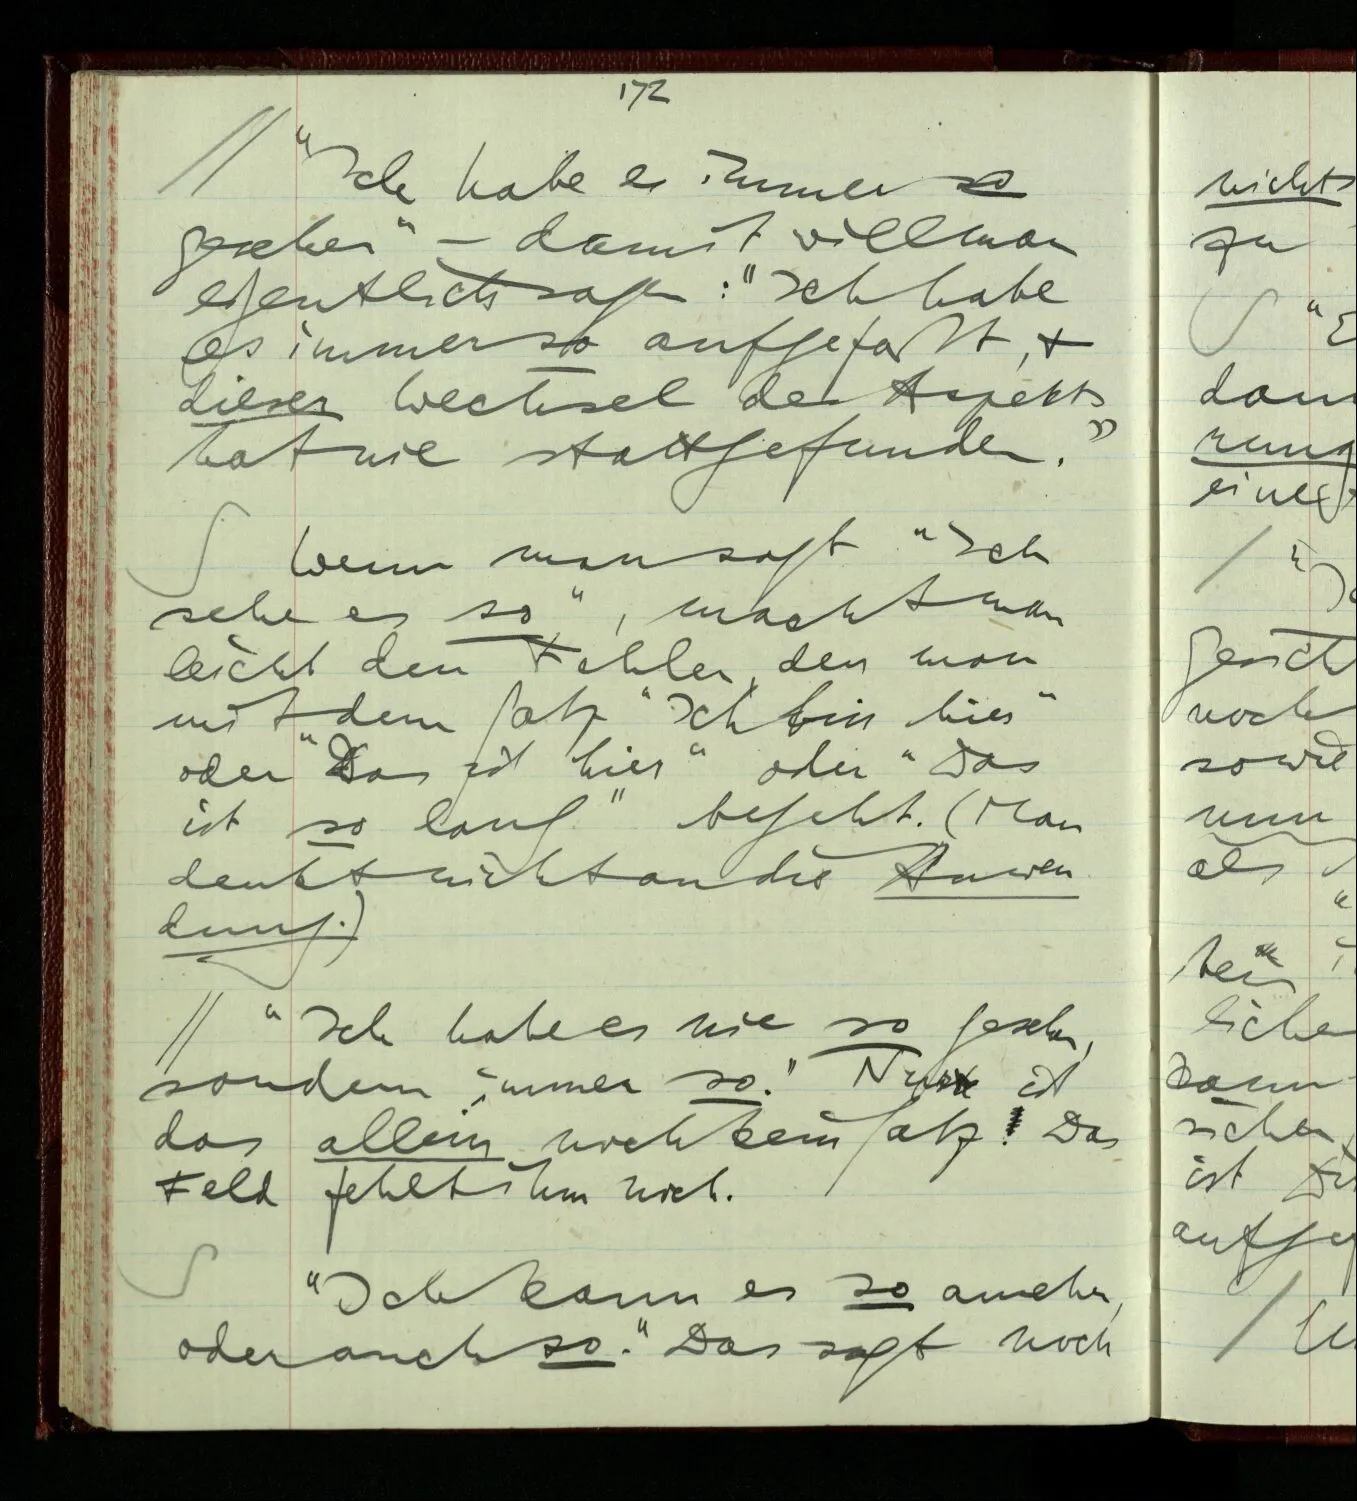 172
// "Ich habe es immer so
gesehen" – damit will man
eigentlich sagen: "Ich habe
es immer so aufgefaßt, +
dieser Wechsel des Aspekts
hat nie stattgefunden."
∫ Wenn man sagt "Ich
sehe es so", macht man
leicht den Fehler, den man
mit dem Satz "Ich bin hier"
oder "Das ist hier" oder "Das
ist so lang" begeht. (Man
denkt nicht an die Anwen
dung.)
// "Ich habe es nie so gesehen,
sondern immer so." Nur ist
das allein noch kein Satz! Das
Feld fehlt ihm noch.
∫ "Ich kann es so ansehen,
oder auch so." Das sagt noch
nichts
zu
∫ "E
dam
rung
eines
/ "I
Gesicht
noch
sowie
nun
als
"
bein
liche
Dann
sicher
ist
aufge
/